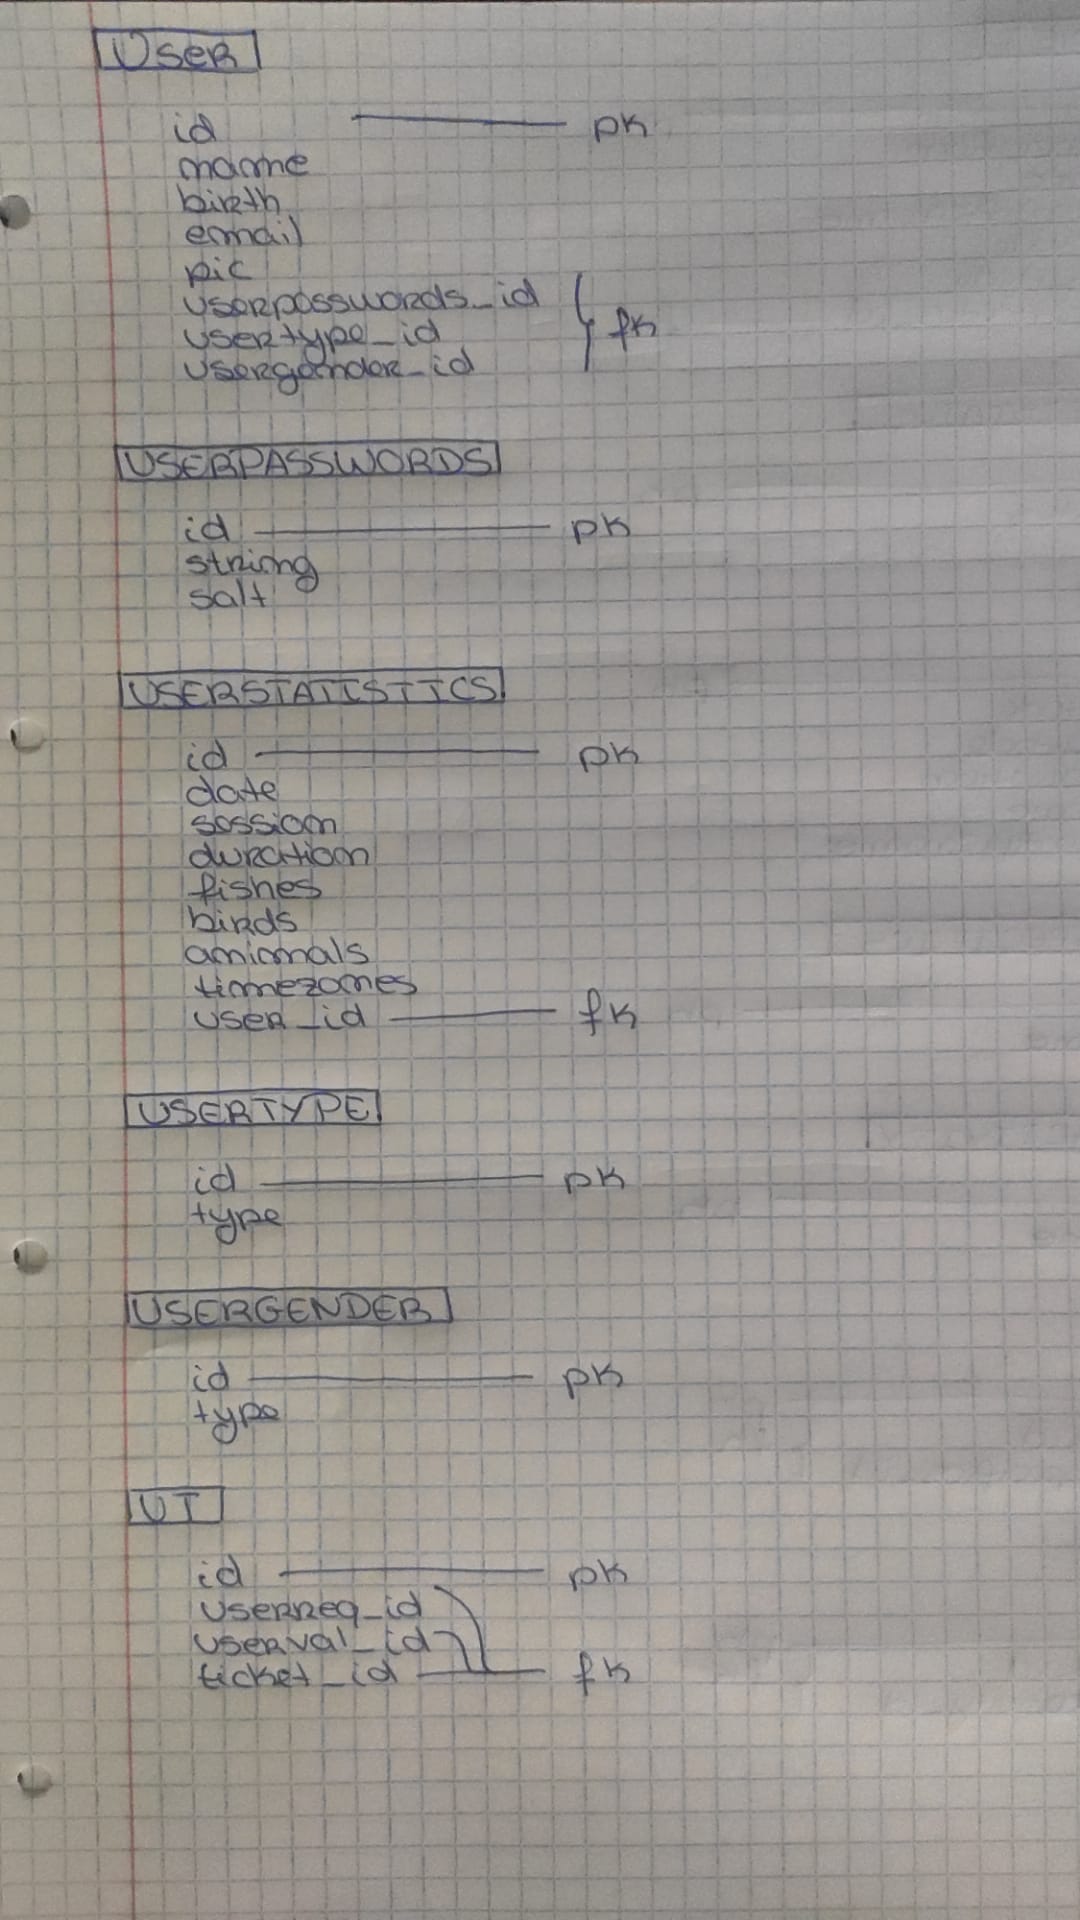 User
id pk
name
birth
email
pic
userpasswords_id
usertype_id fk
usergender_id
USERPASSWORDS
id pk
string
salt
USERSTATISTICS
id pk
date
session
duration
fishes
birds
animals
timezones
user_id fk
USERTYPE
id pk
type
USERGENDER
id pk
type
UT
id pk
userreq_id
userval_id
ticket_id fk